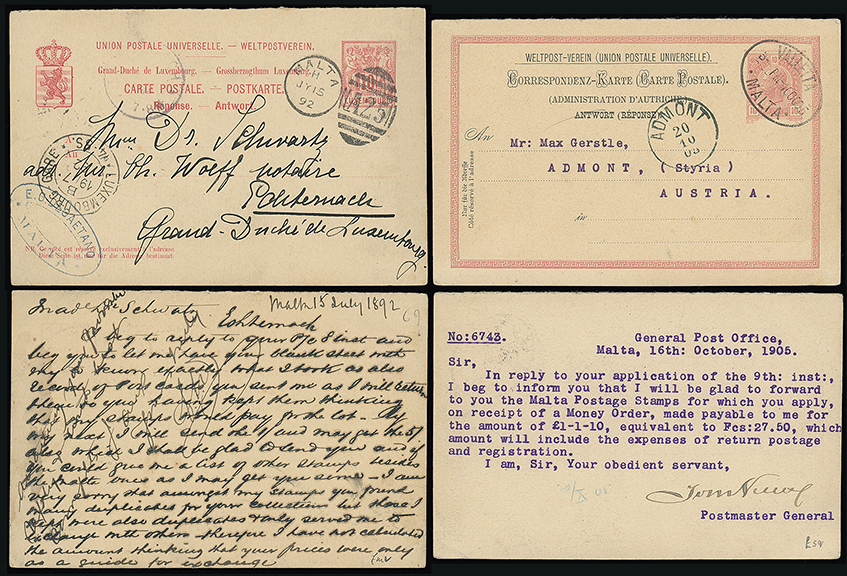 UNION POSTALE UNIVERSELLE. — WELTPOSTVEREIN.
Grand-Duché de Luxembourg. — Grossherzogthum Luxemburg.
CARTE POSTALE. — POSTKARTE.
Réponse. — Antwort.
MALTA
H
JY 15
92
A25
Dr. Schwartz
Th. Wolff notaire
Echternach
Grand-Duché de Luxembourg
LUXEMBOURG GARE
E. G. GAETANO
MALTA
NB. Ce côté est réservé exclusivement à l'adresse.
Diese Seite ist nur für die Adresse bestimmt.
WELTPOST-VEREIN (UNION POSTALE UNIVERSELLE).
CORRESPONDENZ-KARTE (CARTE POSTALE).
(ADMINISTRATION D'AUTRICHE)
ANTWORT (RÉPONSE)
VALLETTA
MALTA
ADMONT
20
10
05
An
Mr: Max Gerstle,
ADMONT, (Styria)
AUSTRIA.
in
Nur für die Adresse
Côté réservé à l'adresse
Malta 15 July 1892
69
Schwartz
Echternach
beg to reply to your P/c 8 inst and
beg you to let me have your blank sheet with
exactly what I took as also
record of Post cards you sent me as I will return
them to you having kept them thinking
that my stamps would pay for the lot. By
my next I will send the
also which I shall be glad to lend you and if
you could give me a list of other stamps besides
the Malta ones as I may get you some — I am
very sorry that amongst my stamps you found
many duplicates for your collection but those I
were also duplicates & only served me to
exchange with others — therefore I have not calculated
the amount thinking that your prices were only
as a guide for exchange
No: 6743.
General Post Office,
Malta, 16th: October, 1905.
Sir,
In reply to your application of the 9th: inst:,
I beg to inform you that I will be glad to forward
to you the Malta Postage Stamps for which you apply,
on receipt of a Money Order, made payable to me for
the amount of £1-1-10, equivalent to Fcs:27.50, which
amount will include the expenses of return postage
and registration.
I am, Sir, Your obedient servant,
Postmaster General